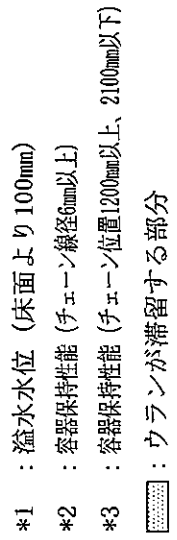 *1 : 溢水水位 (床面より100mm)
*2 : 容器保持性能 (チェーン線径6mm以上)
*3 : 容器保持性能 (チェーン位置1200mm以上、2100mm以下)
: ウランが滞留する部分